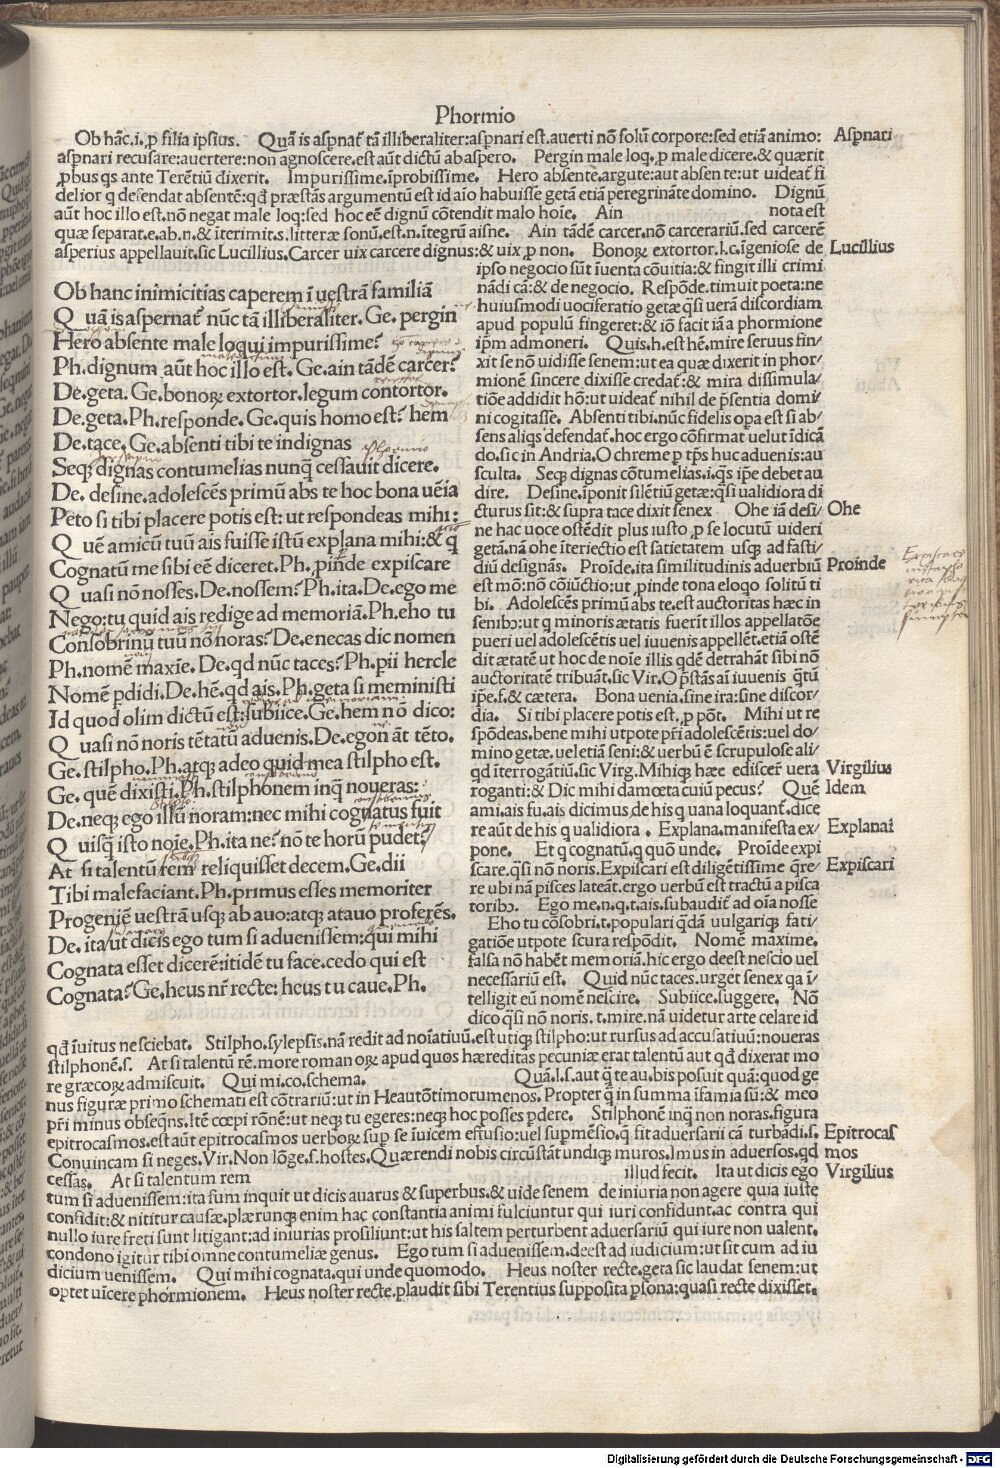 Phormio
Ob hāc.i.ꝓ filia ipsius. Quā is aspnat̄ tā illiberaliter:aspnari est.auerti nō solū corpore:sed etiā animo: Aspnari
aspnari recusare:auertere:non agnoscere.est aūt dictū ab aspero. Pergin male loq.ꝓ male dicere.& quærit
ꝓbus qs ante Terētiū dixerit. Impurissime.īprobissime. Hero absentē.argute:aut absente:ut uideat̄ fi
delior q̄ defendat absentē:qd̄ præstās argumentū est id aīo habuisse getā etiā peregrināte domino. Dignū
aūt hoc illo est.nō negat male loq:sed hoc eē dignū cōtendit malo hoīe. Ain nota est
quæ separat.e.ab.n.& īterimit.s.litteræ sonū.est.n.ītegrū aisne. Ain tādē carcer.nō carcerariū.sed carcerē
asperius appellauit.sic Lucillius.Carcer uix carcere dignus:& uix ꝓ non. Bonoꝝ extortor.l.c.īgeniose de Lucillius
ipso negocio sūt īuenta cōuitia:& fingit illi crimi
nādi cā:& de negocio. Respōde.timuit poeta:ne
huiusmodi uociferatio getæ qsi uerā discordiam
apud populū fingeret:& iō facit iā a phormione
ip̄m admoneri. Quis.h.est hē.mire seruus fin/
xit se nō uidisse senem:ut ea quæ dixerit in phor/
mionē sincere dixisse credat̄:& mira dissimula/
tiōe addidit hō:ut uideat̄ nihil de p̄sentia domi/
ni cogitasse. Absenti tibi.nūc fidelis opa est si ab/
sens aliqs defendat̄.hoc ergo cōfirmat uelut īdicā
do.sic in Andria.O chreme p tp̄s huc aduenis:au
sculta. Seqꝫ dignas cōtumelias.i.qs ip̄e debet au
dire. Desine.īponit silētiū getæ:qsi ualidiora di
cturus sit:& supra tace dixit senex Ohe iā desi/ Ohe
ne hac uoce ostēdit plus iusto ꝓ se locutū uideri
getā.nā ohe īteriectio est satietatem usqꝫ ad fasti/
diū designās. Proīde.ita similitudinis aduerbiū Proinde
est mō:nō cōiūctio:ut ꝓinde tona eloqo solitū ti
bi. Adolescēs primū abs te.est auctoritas hæc in
senibꝫ:ut q minoris ætatis fuerīt illos appellatōe
pueri uel adolescētis uel iuuenis appellēt.etiā ostē
dit ætatē ut hoc de noīe illis qdē detrahāt sibi nō
auctoritatē tribuāt.sic Vir.O p̄stās aī iuuenis q̄tū
ip̄e.f.& cætera. Bona uenia.sine ira:sine discor/
dia. Si tibi placere potis est.ꝓ pōt. Mihi ut re
spōdeas.bene mihi utpote pr̄i adolescētis:uel do/
mino getæ.uel etiā seni:& uerbū ē scrupulose ali/
qd īterrogātiū.sic Virg.Mihiqꝫ hæc ediscer̄ uera Virgilius
roganti:& Dic mihi damœta cuiū pecus? Quē Idem
ami.ais fu.ais dicimus de his q uana loquant̄.dice
re aūt de his q ualidiora . Explana.manifesta ex/ Explanat
pone. Et q cognatū.q quō unde. Proīde expi
scare.qsi nō noris.Expiscari est diligētissime q̄re/ Expiscari
re ubi nā pisces lateāt.ergo uerbū est tractū a pisca
toribꝫ. Ego me.n.q.t.ais.subaudit̄ ad oīa nosse
Eho tu cōsobri.t.populari qdā uulgariqꝫ fati/
gatiōe utpote scura respōdit. Nomē maxime.
falsa nō habēt memoriā.hic ergo deest nescio uel
necessariū est. Quid nūc taces.urget senex qa ī/
telligit eū nomē nescire. Subiice.suggere. Nō
dico qsi nō noris.t.mire.nā uidetur arte celare id
Ob hanc inimicitias caperem ī uestrā familiā
Quā is aspernat̄ nūc tā illiberaliter.Ge.pergin
Hero absente male loqui impurissime?
Ph.dignum aūt hoc illo est.Ge.ain tādē carcer?
De.geta.Ge.bonoꝝ extortor.legum contortor.
De.geta.Ph.responde.Ge.quis homo est? hem
De.tace.Ge.absenti tibi te indignas
Seqꝫ dignas contumelias nunq̄ cessauit dicere.
De. desine.adolescēs primū abs te hoc bona uēia
Peto si tibi placere potis est: ut respondeas mihi:
Quē amicū tuū ais fuisse istū explana mihi:& q
Cognatū me sibi eē diceret.Ph.ꝓinde expiscare
Quasi nō nosses.De.nossem? Ph.ita.De.ego me
Nego:tu quid ais redige ad memoriā.Ph.eho tu
Consobrinū tuū nō noras? De.enecas dic nomen
Ph.nomē maxīe.De.qd nūc taces? Ph.pii hercle
Nomē pdidi.De.hē.qd ais.Ph.geta si meministi
Id quod olim dictū est:subiice.Ge.hem nō dico:
Quasi nō noris tētatū aduenis.De.egon āt tēto.
Ge.stilpho.Ph.atqꝫ adeo quid mea stilpho est.
Ge.quē dixisti.Ph.stilphonem inq̄ noueras:
De.neqꝫ ego illū noram:nec mihi cognatus fuit
Quisq̄ isto noīe.Ph.ita ne? nō te horū pudet?
At si talentū rem reliquisset decem.Ge.dii
Tibi malefaciant.Ph.primus esses memoriter
Progeniē uestrā usqꝫ ab auo:atqꝫ atauo proferēs.
De.ita ut dicis ego tum si aduenissem:qui mihi
Cognata esset dicerē:itidē tu face.cedo qui est
Cognata? Ge.heus nr̄ recte: heus tu caue.Ph.
qd īuitus nesciebat. Stilpho.sylepsis.nā redit ad noīatiuū.est utiqꝫ stilpho:ut rursus ad accusatiuū:noueras
stilphonē.s. At si talentū rē.more romanoꝝ apud quos hæreditas pecuniæ erat talentū aut qd dixerat mo
re græcoꝝ admiscuit. Qui mi.co.schema. Quā.l.s.aut q̄ te au.bis posuit quā:quod ge
nus figuræ primo schemati est cōtrariū:ut in Heautōtimorumenos.Propter q̄ in summa īfamia sū:& meo
pr̄i minus obseqns.Itē cœpi rōnē:ut neqꝫ tu egeres:neqꝫ hoc posses pdere. Stilphonē inq̄ non noras.figura
epitrocasmos.est aūt epitrocasmos uerboꝝ sup se īuicem effusio:uel supmēsio.q̄ fit aduersarii cā turbādi.s. Epitrocas
Conuincam si neges.Vir.Non lōge.s.hostes.Quærendi nobis circūstāt undiqꝫ muros.Imus in aduersos.qd mos
cessās. At si talentum rem illud fecit. Ita ut dicis ego Virgilius
tum si aduenissem:ita fum inquit ut dicis auarus & superbus.& uide senem de iniuria non agere quia iuste
confidit:& nititur causæ.plærunqꝫ enim hac constantia animi fulciuntur qui iuri confidunt.ac contra qui
nullo iure freti sunt litigant:ad iniurias prosiliunt:ut his saltem perturbent aduersariū qui iure non ualent.
condono igitur tibi omne contumeliæ genus. Ego tum si aduenissem.deest ad iudicium:ut sit cum ad iu
dicium uenissem. Qui mihi cognata.qui unde quomodo. Heus noster recte.geta sic laudat senem:ut
optet uicere phormionem. Heus noster recte.plaudit sibi Terentius supposita psona:quasi recte dixisset.
Digitalisierung gefördert durch die Deutsche Forschungsgemeinschaft - DFG